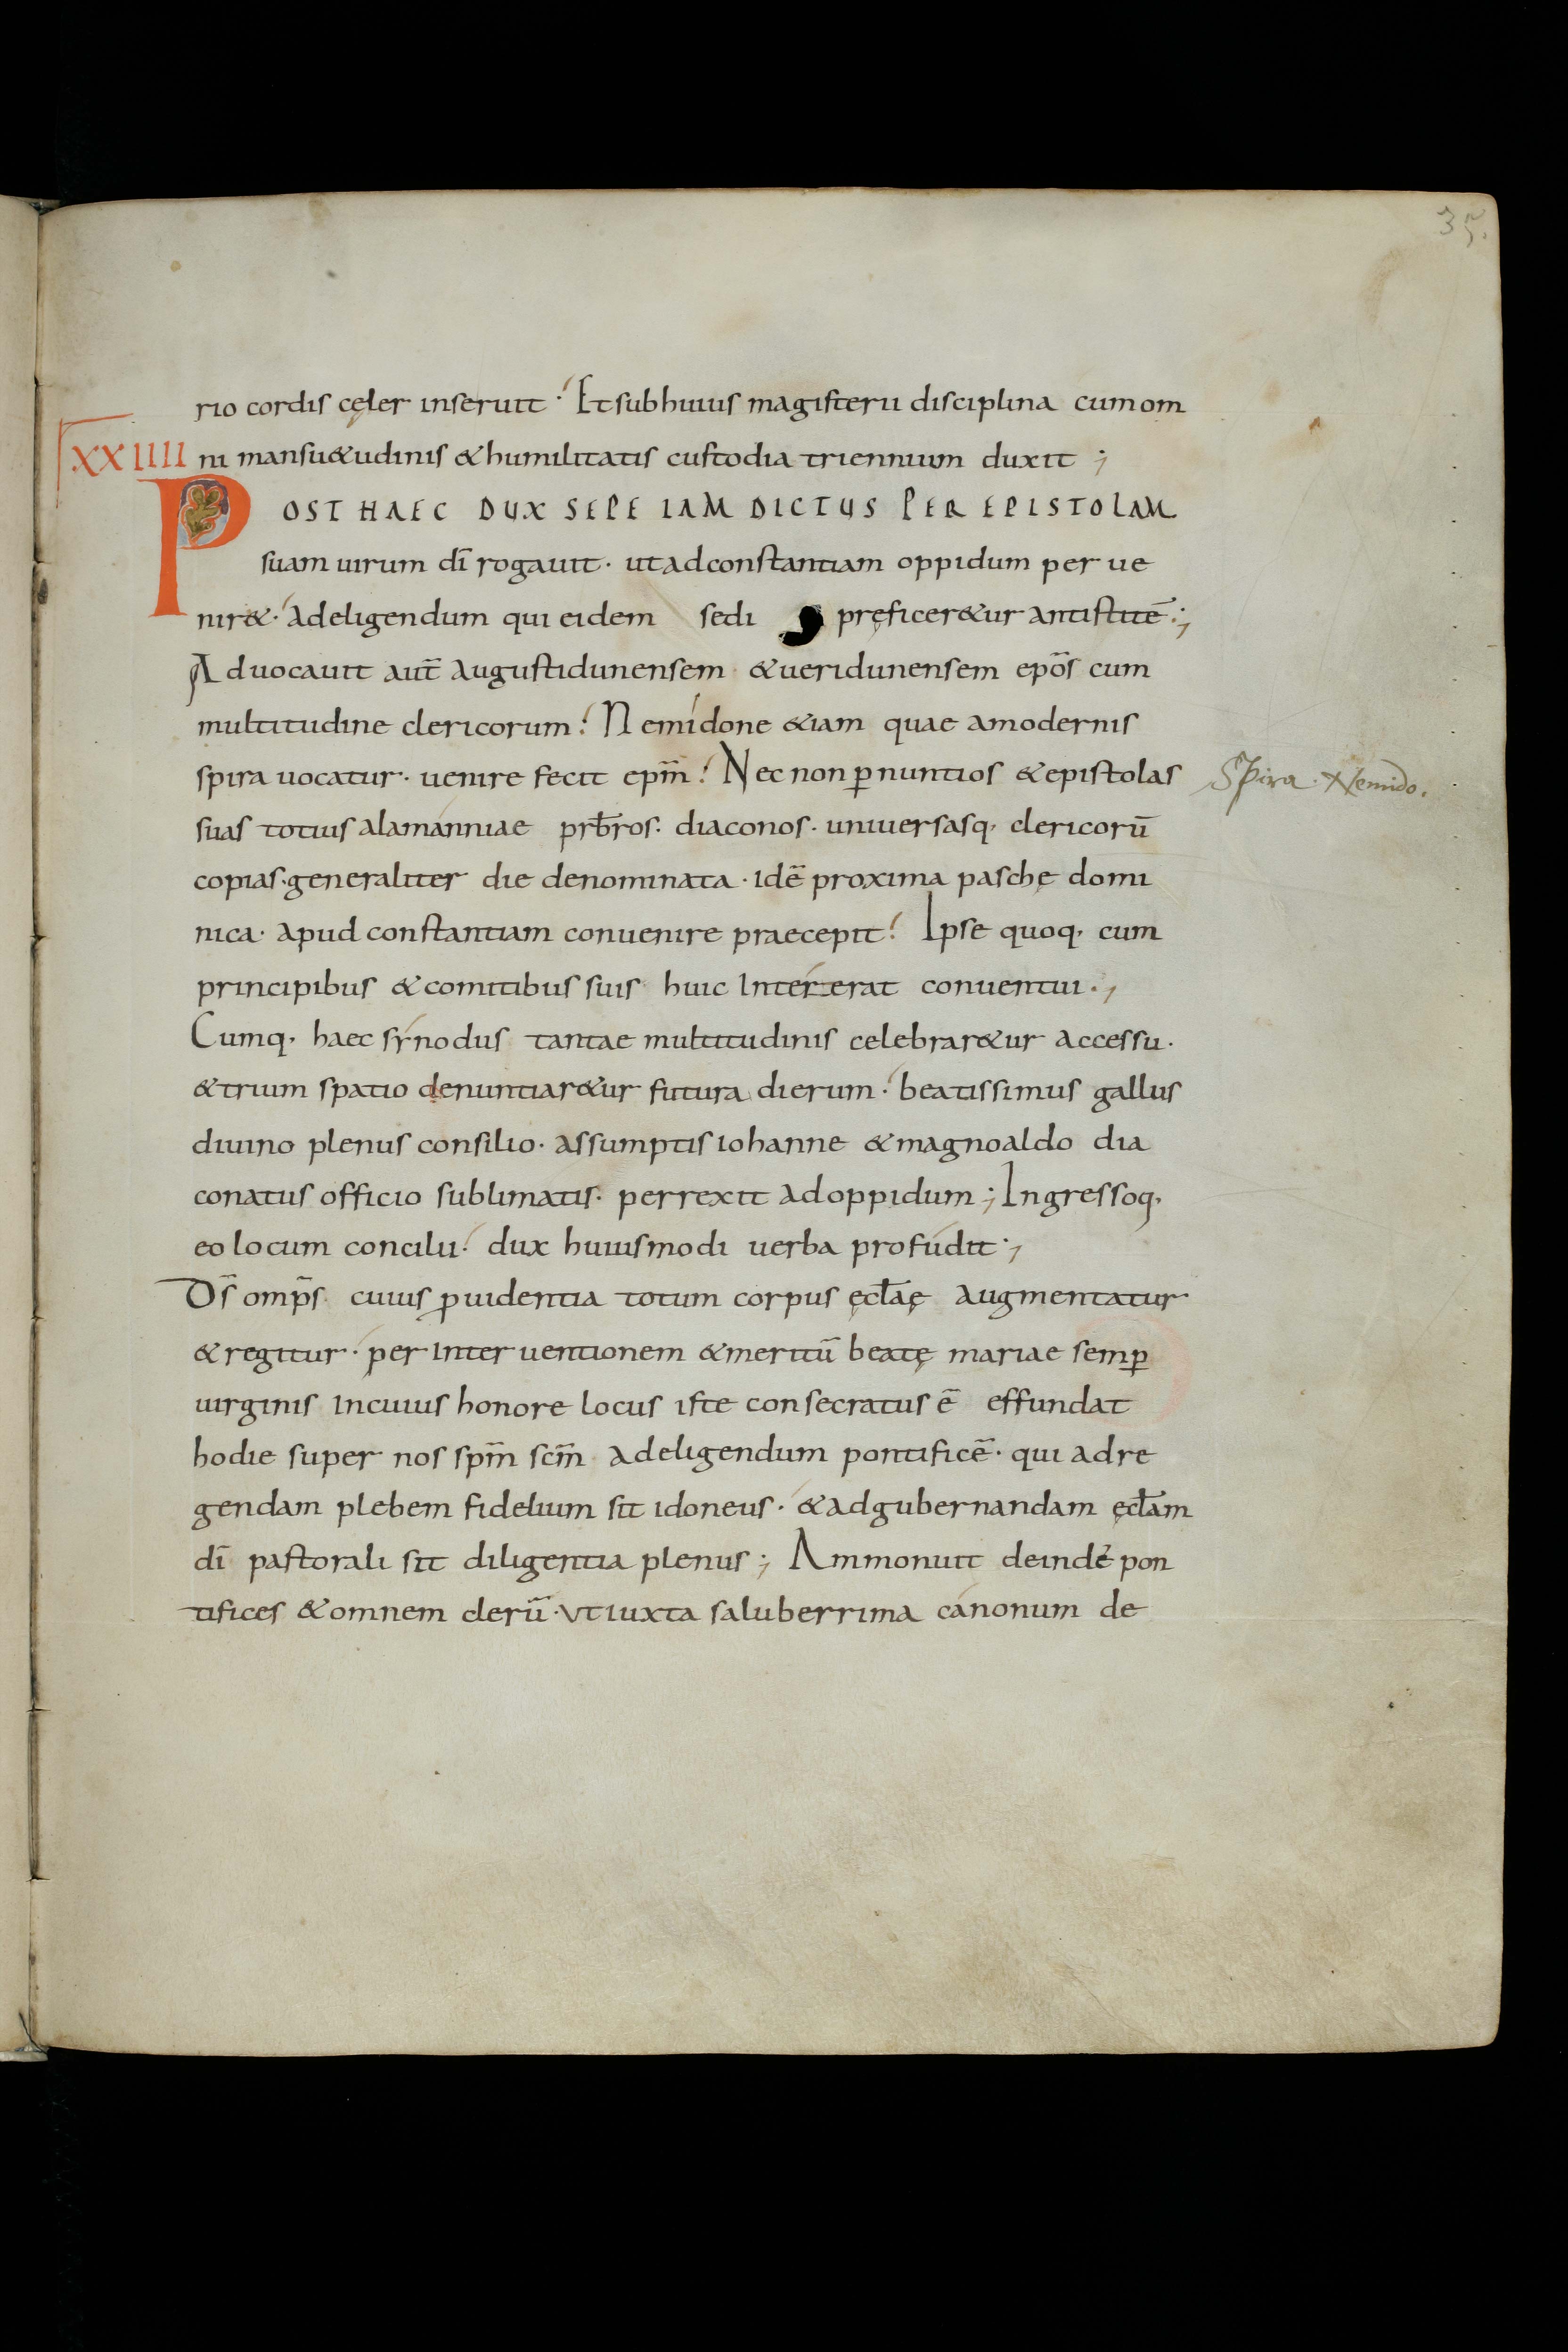 35.
rio cordis cęler inseruit · Et sub huius magisterii disciplina cum om
XXIIII
ni mansu&udinis & humilitatis custodia triennium duxit ;
POST HAEC DUX SEPE IAM DICTUS PER EPISTOLAM
suam uirum dī rogauit · ut ad constantiam oppidum per ue
nir& · ad eligendum qui eidem sedi pręficer&ur antistitē ;
Aduocauit aut̄ augustidunensem & ueridunensem epōs cum
multitudine clericorum ! Nemidone &iam quae a modernis
spira uocatur · uenire fecit ep̄m ! Nec non ꝑ nuntios & epistolas
Spira · Nemido.
suas totius alamánniae prb̄ros · diaconos · uniuersasq· clericorū
copias · generaliter die denominata · idē proxima paschę domi
nica · apud constantiam conuenire praecepit ! Ipse quoq· cum
principibus & comitibus suis huic intererat conuentui ·,
Cumq· haec sýnodus tantae multitudinis celebrar&ur accessu ·
& trium spatio denuntiar&ur futura dierum · beatissimus gallus
diuino plenus consilio · assumptis iohanne & magnoaldo dia
conatus officio sublimatis · perrexit ad oppidum ; Ingressoq·
eo locum concilii · dux huiusmodi uerba profúdit ·,
Ds̄ omp̄s cuius ꝓuidentia totum corpus ęcl̄aę augmentatur
& regitur · per interuentionem & meritū beatę mariae semꝑ
uirginis in cuius honore locus iste consecratus ē effundat
hodie super nos sp̄m sc̄m ad eligendum pontificē · qui ad re
gendam plebem fidelium sit idoneus · & ad gubernandam ęcl̄am
dī pastorali sit diligentia plenus ; Ammonuit deinde pon
tifices & omnem clerū · ut iuxta saluberrima cánonum de